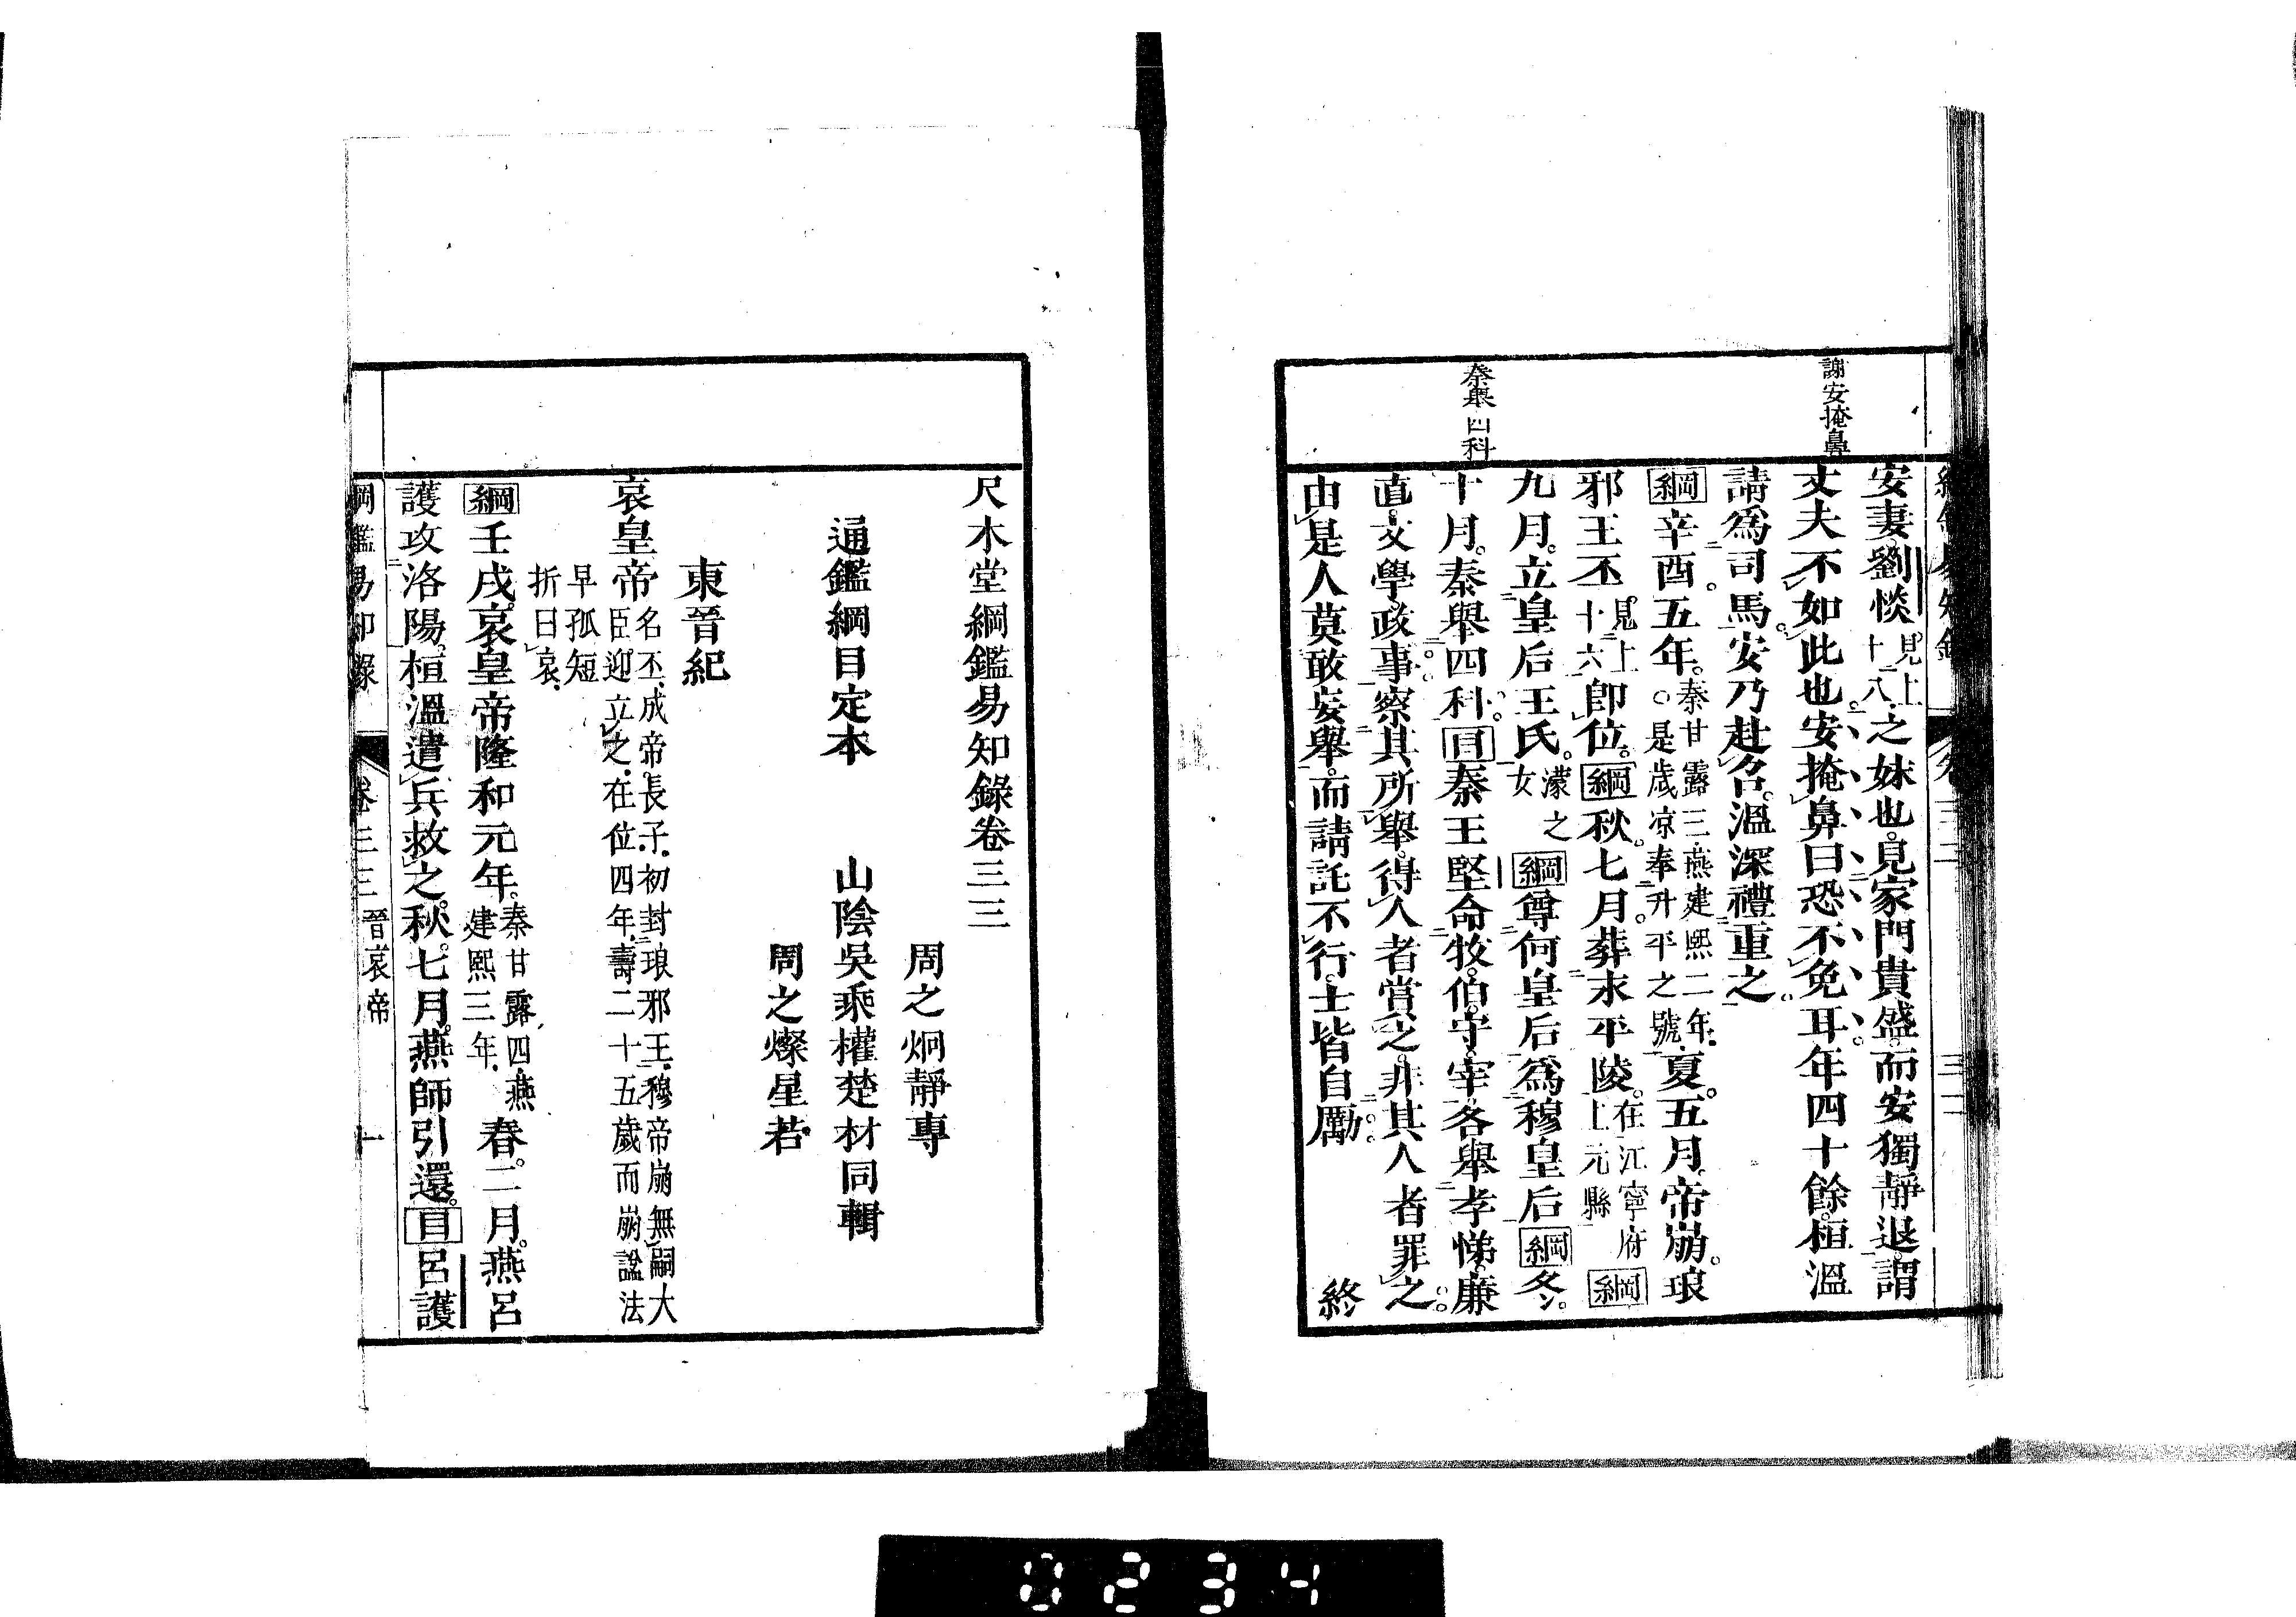 謝安掩鼻
秦舉四科
安妻劉惔見上十八之妹也見家門貴盛而安獨靜退謂
丈夫不如此也安掩鼻曰恐不免耳年四十餘桓溫
請爲司馬安乃赴召溫深禮重之
綱辛酉五年秦甘露三燕建熙二年○是歲凉奉升平之號夏五月帝崩琅
邪王丕見上十六卽位綱秋七月葬永平陵在江寧府上元縣綱
九月立皇后王氏濛之女綱尊何皇后爲穆皇后綱冬
十月秦舉四科目秦王堅命牧伯守宰各舉孝悌廉
直文學政事察其所舉得人者賞之非其人者罪之
由是人莫敢妄舉而請託不行士皆自勵 終
尺木堂綱鑑易知錄卷三三
周之炯靜專
通鑑綱目定本 山陰吳乘權楚材同輯
周之燦星若
東晉紀
哀皇帝名丕成帝長子初封琅邪王穆帝崩無嗣大臣迎立之在位四年壽二十五歲而崩諡法早孤短折曰哀
綱壬戌哀皇帝隆和元年秦甘露四燕建熙三年春二月燕呂
護攻洛陽桓溫遣兵救之秋七月燕師引還目呂護
綱鑑易知錄 卷三三 晉哀帝 一
0234